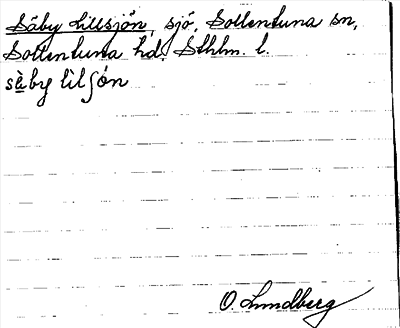 Säby Lillsjön, sjö, Sollentuna sn,
Sollentuna hd, Sthlm. l.
sàby lìlʃön
O. Lundberg